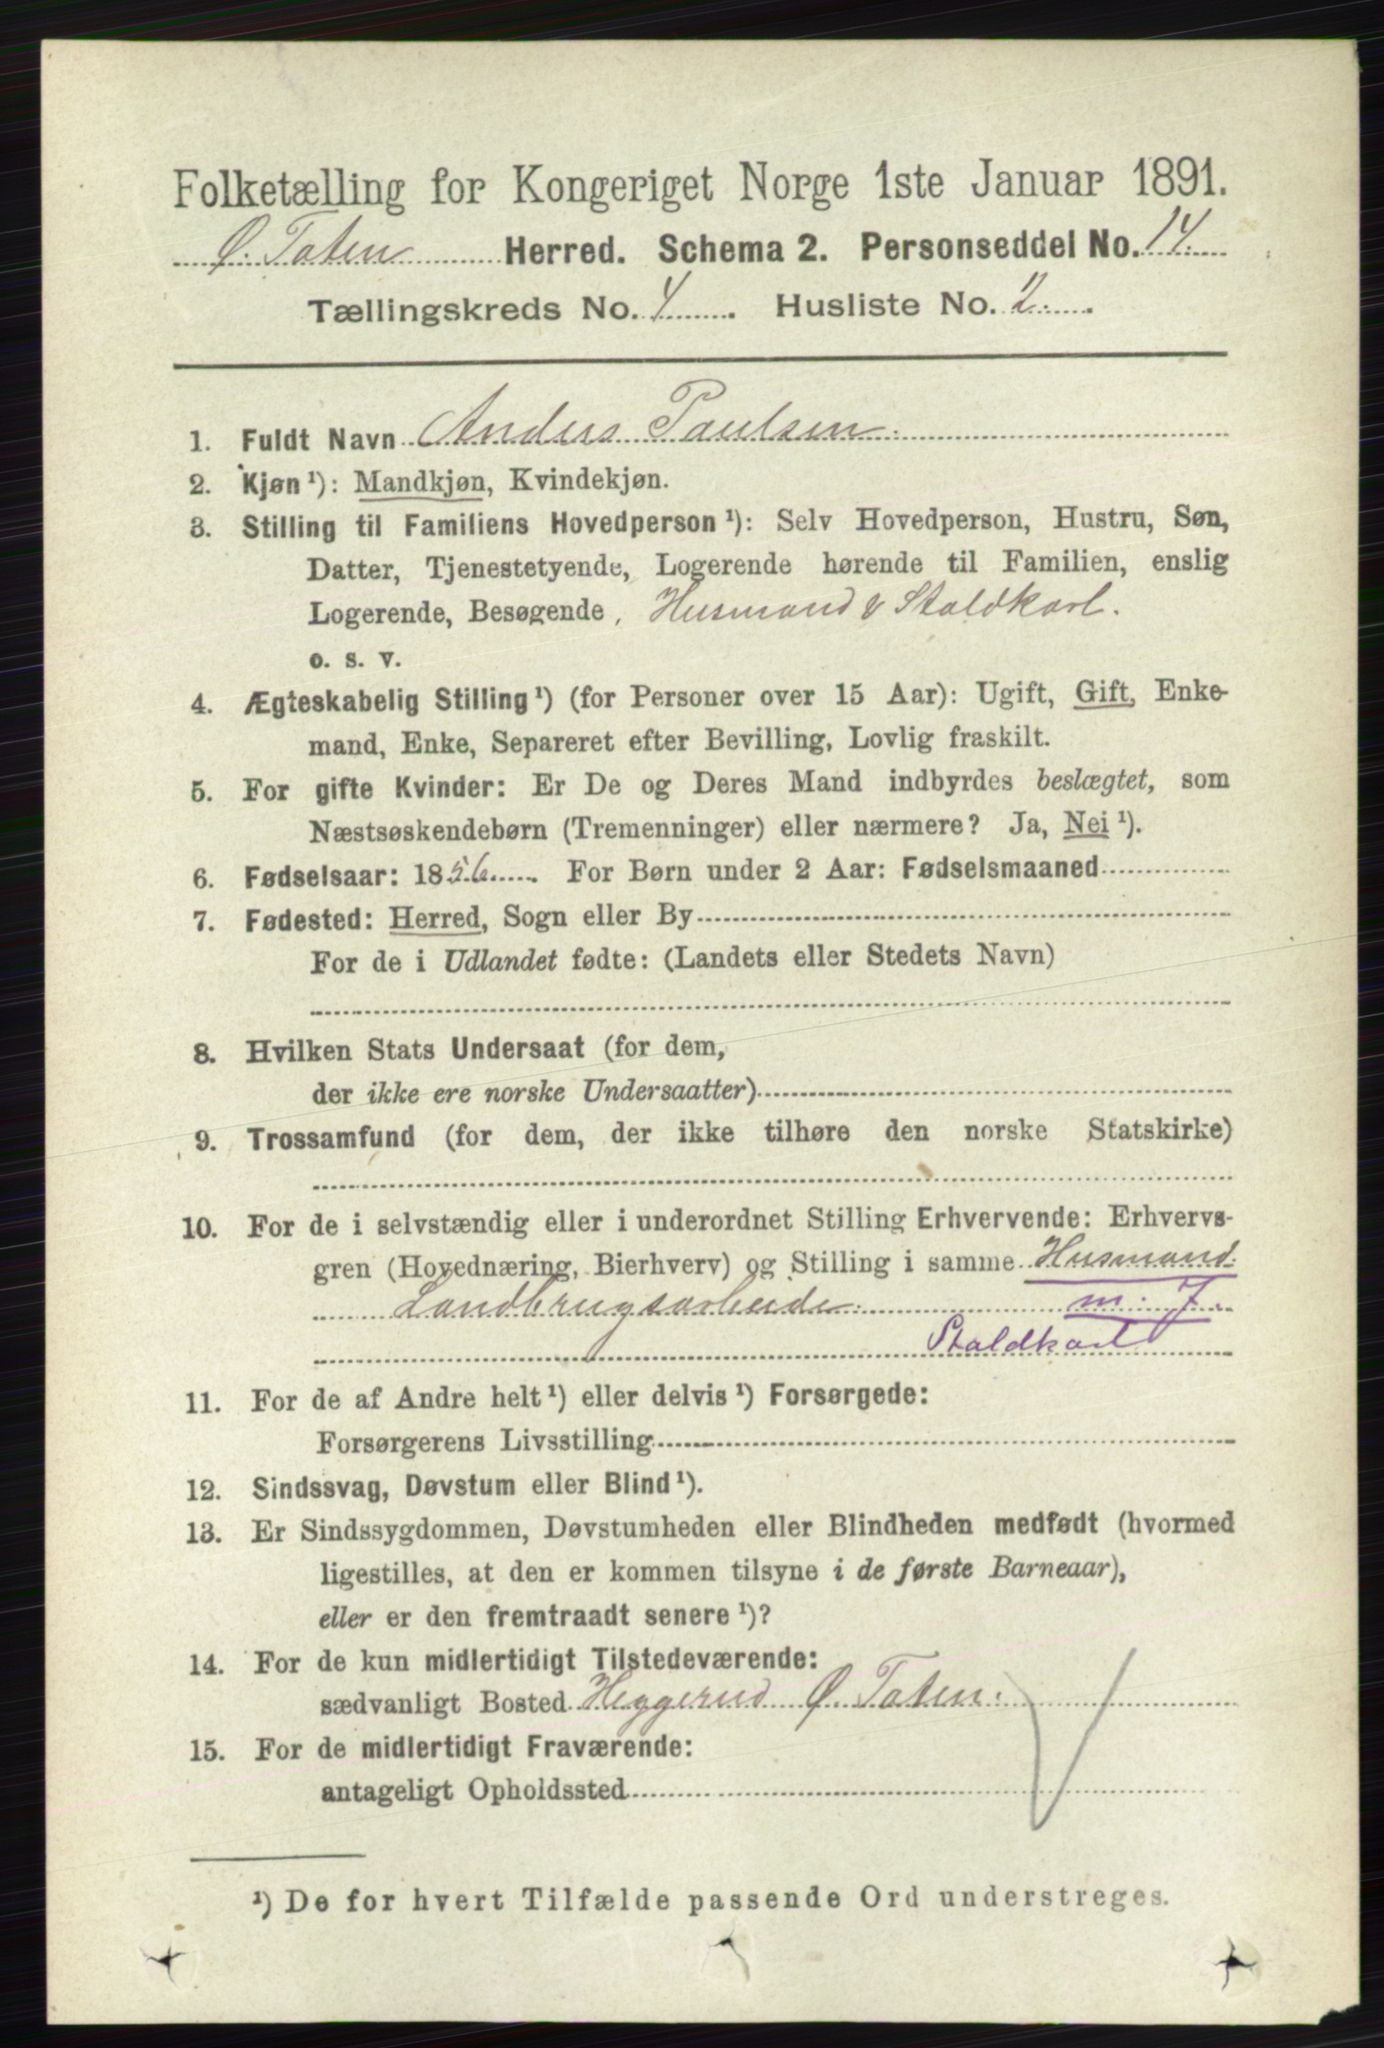 Folketælling for Kongeriget Norge 1ste Januar 1891.
Ø. Toten Herred. Schema 2. Personseddel No. 14.
Tællingskreds No. 4. Husliste No. 2.
1. Fuldt Navn Anders Paulsen.
2. Kjøn ¹): Mandkjøn, Kvindekjøn.
3. Stilling til Familiens Hovedperson ¹): Selv Hovedperson, Hustru, Søn,
Datter, Tjenestetyende, Logerende hørende til Familien, enslig
Logerende, Besøgende, Husmand & Staldkarl.
o. s. v.
4. Ægteskabelig Stilling ¹) (for Personer over 15 Aar): Ugift, Gift, Enke-
mand, Enke, Separeret efter Bevilling, Lovlig fraskilt.
5. For gifte Kvinder: Er De og Deres Mand indbyrdes beslægtet, som
Næstsøskendebørn (Tremenninger) eller nærmere? Ja, Nei ¹).
6. Fødselsaar: 1856. For Børn under 2 Aar: Fødselsmaaned
7. Fødested: Herred, Sogn eller By
For de i Udlandet fødte: (Landets eller Stedets Navn)
8. Hvilken Stats Undersaat (for dem,
der ikke ere norske Undersaatter)
9. Trossamfund (for dem, der ikke tilhøre den norske Statskirke)
10. For de i selvstændig eller i underordnet Stilling Erhvervende: Erhvervs-
gren (Hovednæring, Bierhverv) og Stilling i samme Husmand.
Landbrugsarbeide. m. J.
Staldkarl
11. For de af Andre helt ¹) eller delvis ¹) Forsørgede:
Forsørgerens Livsstilling
12. Sindssvag, Døvstum eller Blind ¹).
13. Er Sindssygdommen, Døvstumheden eller Blindheden medfødt (hvormed
ligestilles, at den er kommen tilsyne i de første Barneaar),
eller er den fremtraadt senere ¹)?
14. For de kun midlertidigt Tilstedeværende:
sædvanligt Bosted Heggerud Ø. Toten.
15. For de midlertidigt Fraværende:
antageligt Opholdssted
¹) De for hvert Tilfælde passende Ord understreges.